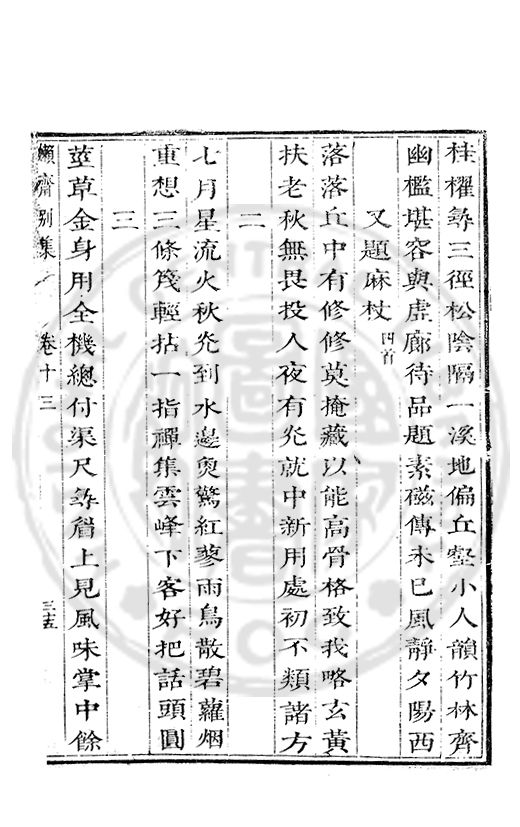 桂櫂斜三徑松陰隔一溪地偏丘壑小人韻竹林齊
幽檻堪容與虛廊待品題素磁傳未已風靜夕陽西
又題麻杖四首
落落丘中有修修莫掩藏以能高骨格致我略玄黃
扶老秋無畏投人夜有光就中新用處初不類諸方
二
七月星流火秋光到水邊魚驚紅蓼雨鳥散碧蘿烟
重想三條篾輕拈一指禪集雲峰下客好把話頭圓
三
莖草金身用全機總付渠尺斜眉上見風味掌中餘
嬾齋別集
卷十三
三五